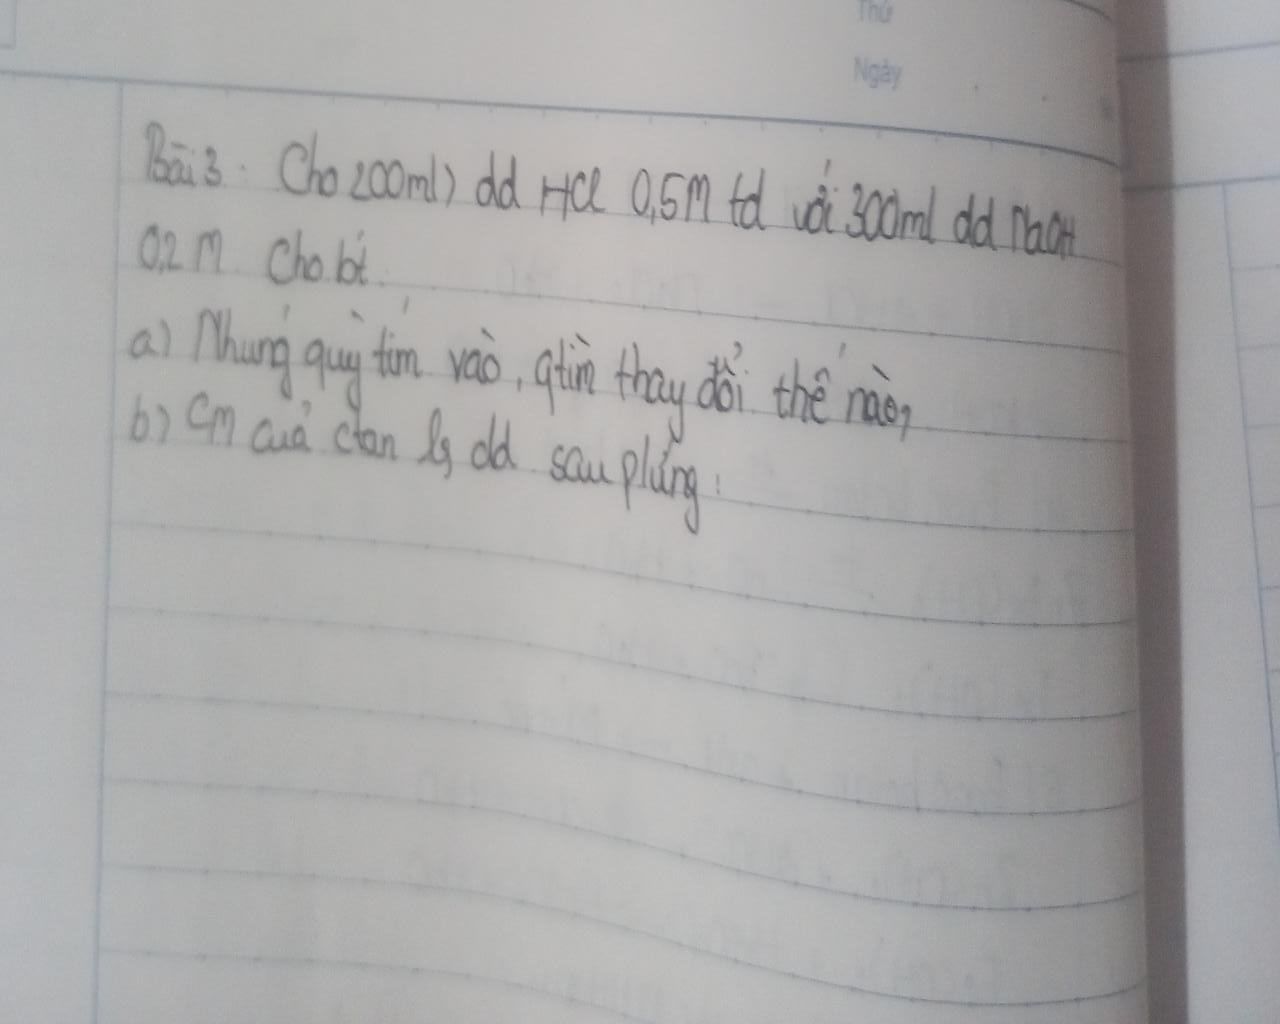 Thứ
Ngày
Bài 3. Cho 200ml) dd HCl 0,5M td với 300ml dd NaOH
0,2 M Cho bt.
a) Nhúng quỳ tím vào, qtím thay đổi thế nào,
b) CM của ctan dd sau pứng: